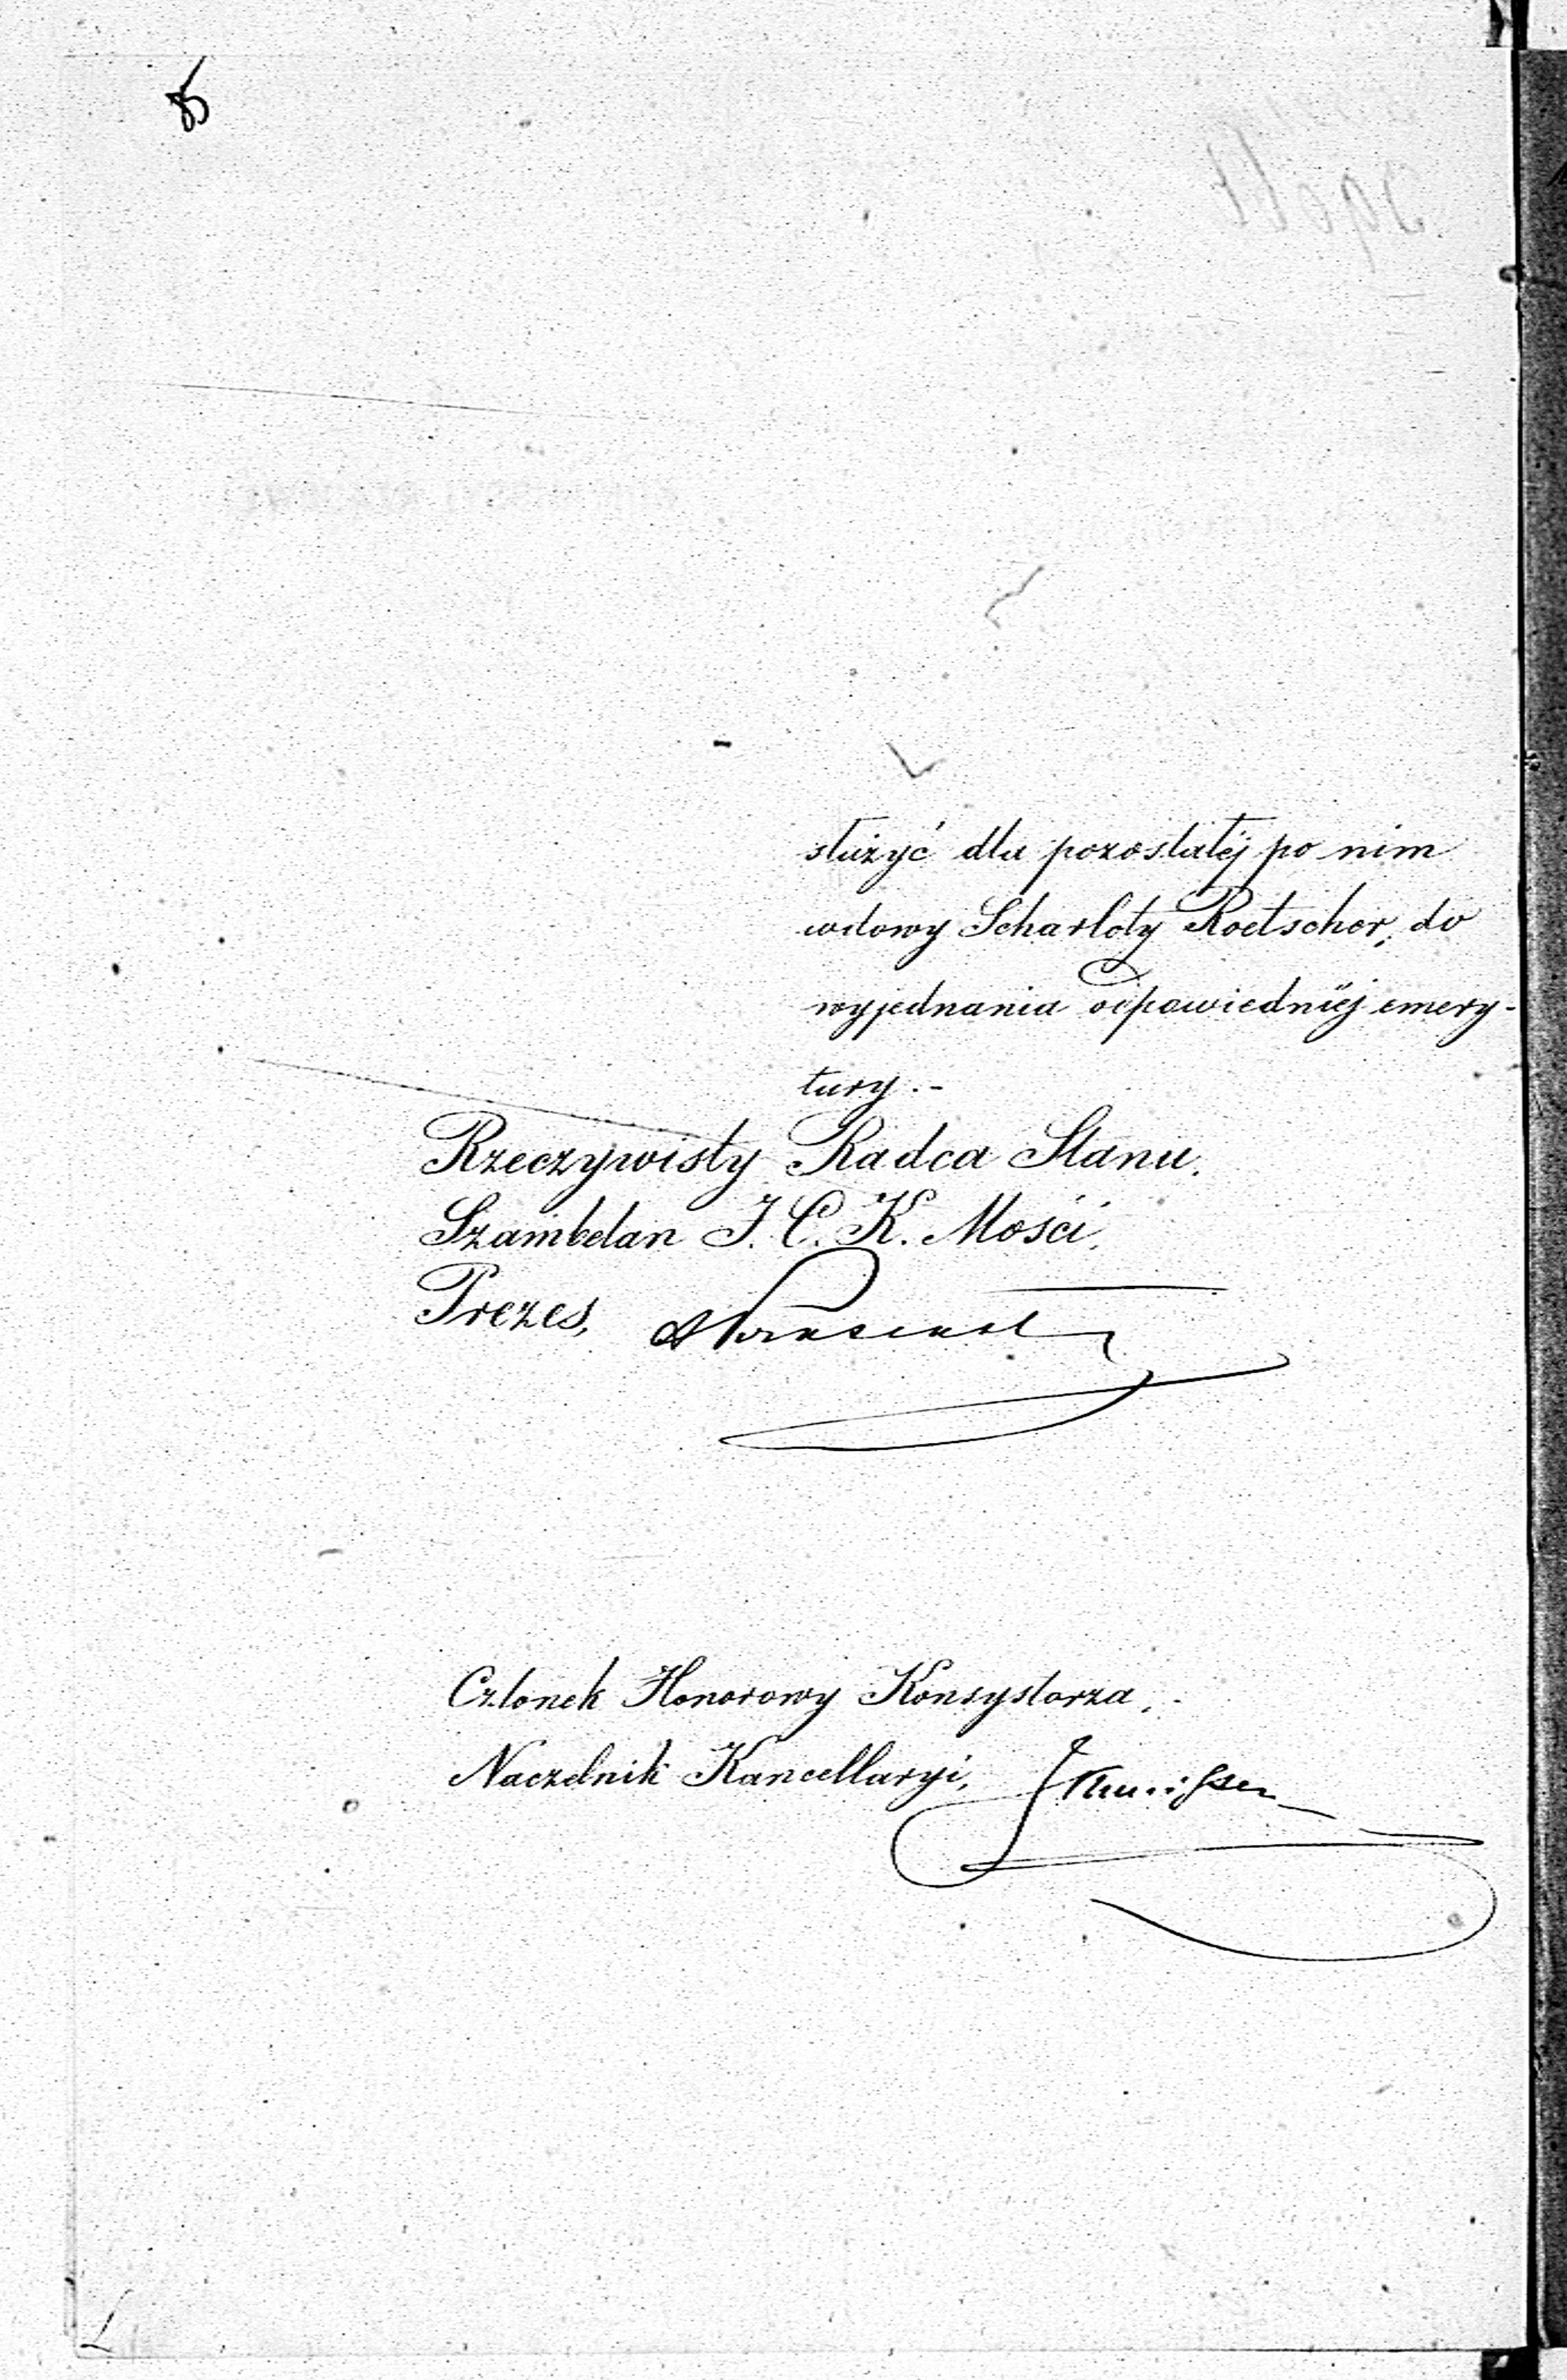 służyć dla pozostałéj po nim
wdowy Scharloty Roetscher, do
wyjednania odpowiedniéj emery-
tury.-
Rzeczywisty Radca Stanu,
Szambelan J. C. K. Mości,
Prezes,
Członek Honorowy Konsystorza,
Naczelnik Kancellaryi,